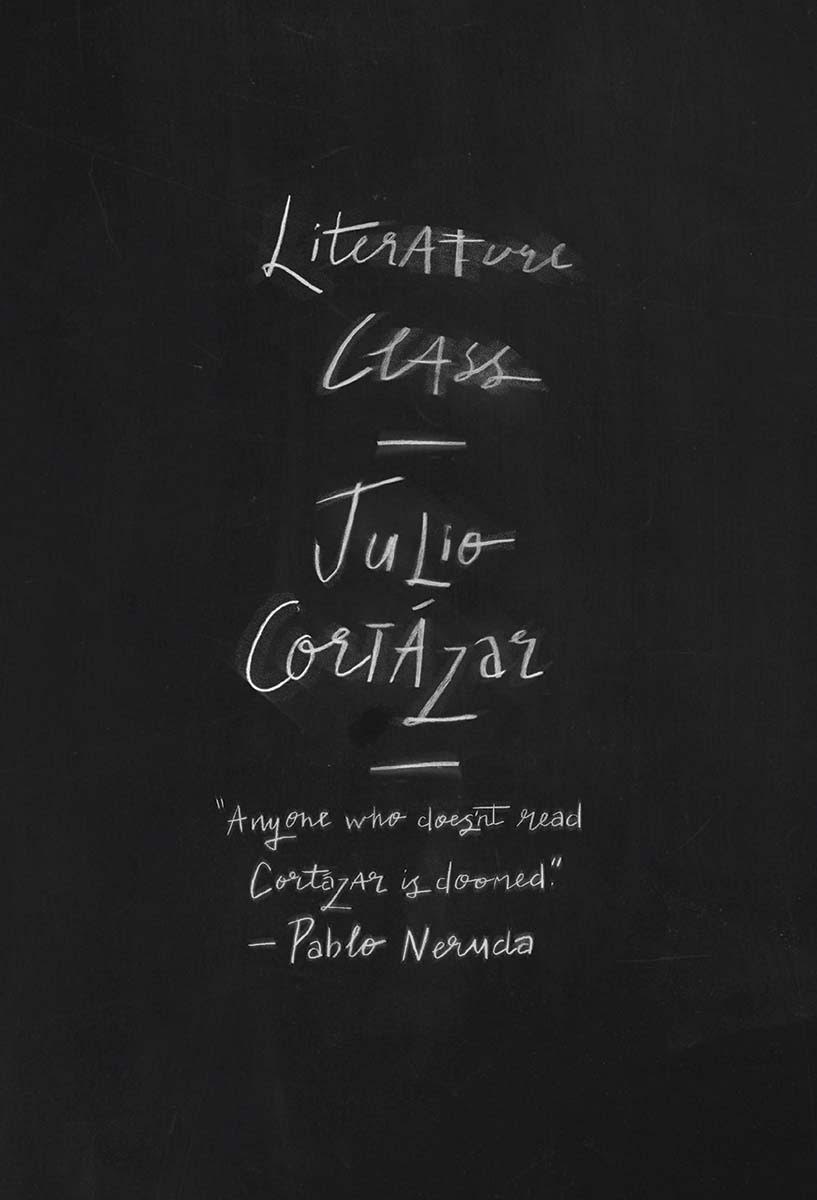 Literature
Class
Julio
Cortázar
"Anyone who doesn't read
Cortázar is doomed."
— Pablo Neruda